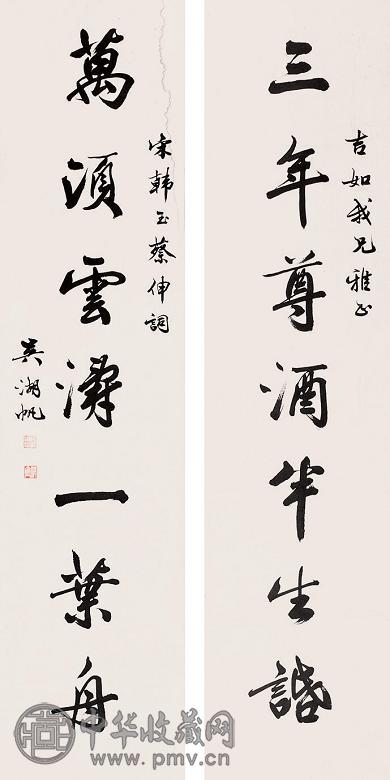 三年尊酒半生諙
吉如我兄雅正
萬頃雲濤一葉舟
宋韓玉蔡伸詞
吳湖帆
中华收藏网
www.pmv.cn